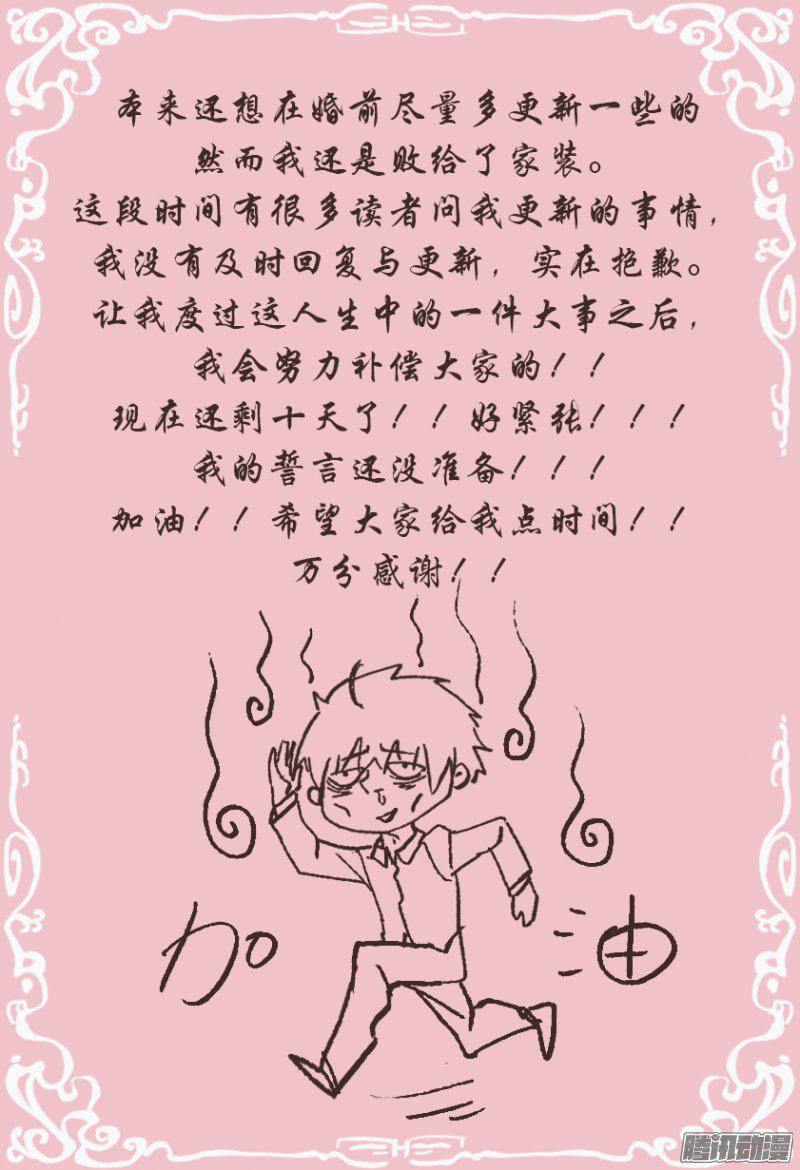 本来还想在婚前尽量多更新一些的
然而我还是败给了家装。
这段时间有很多读者问我更新的事情，
我没有及时回复与更新，实在抱歉。
让我度过这人生中的一件大事之后，
我会努力补偿大家的！！
现在还剩十天了！！好紧张！！！
我的誓言还没准备！！！
加油！！希望大家给我点时间！！
万分感谢！！
加油
腾讯动漫